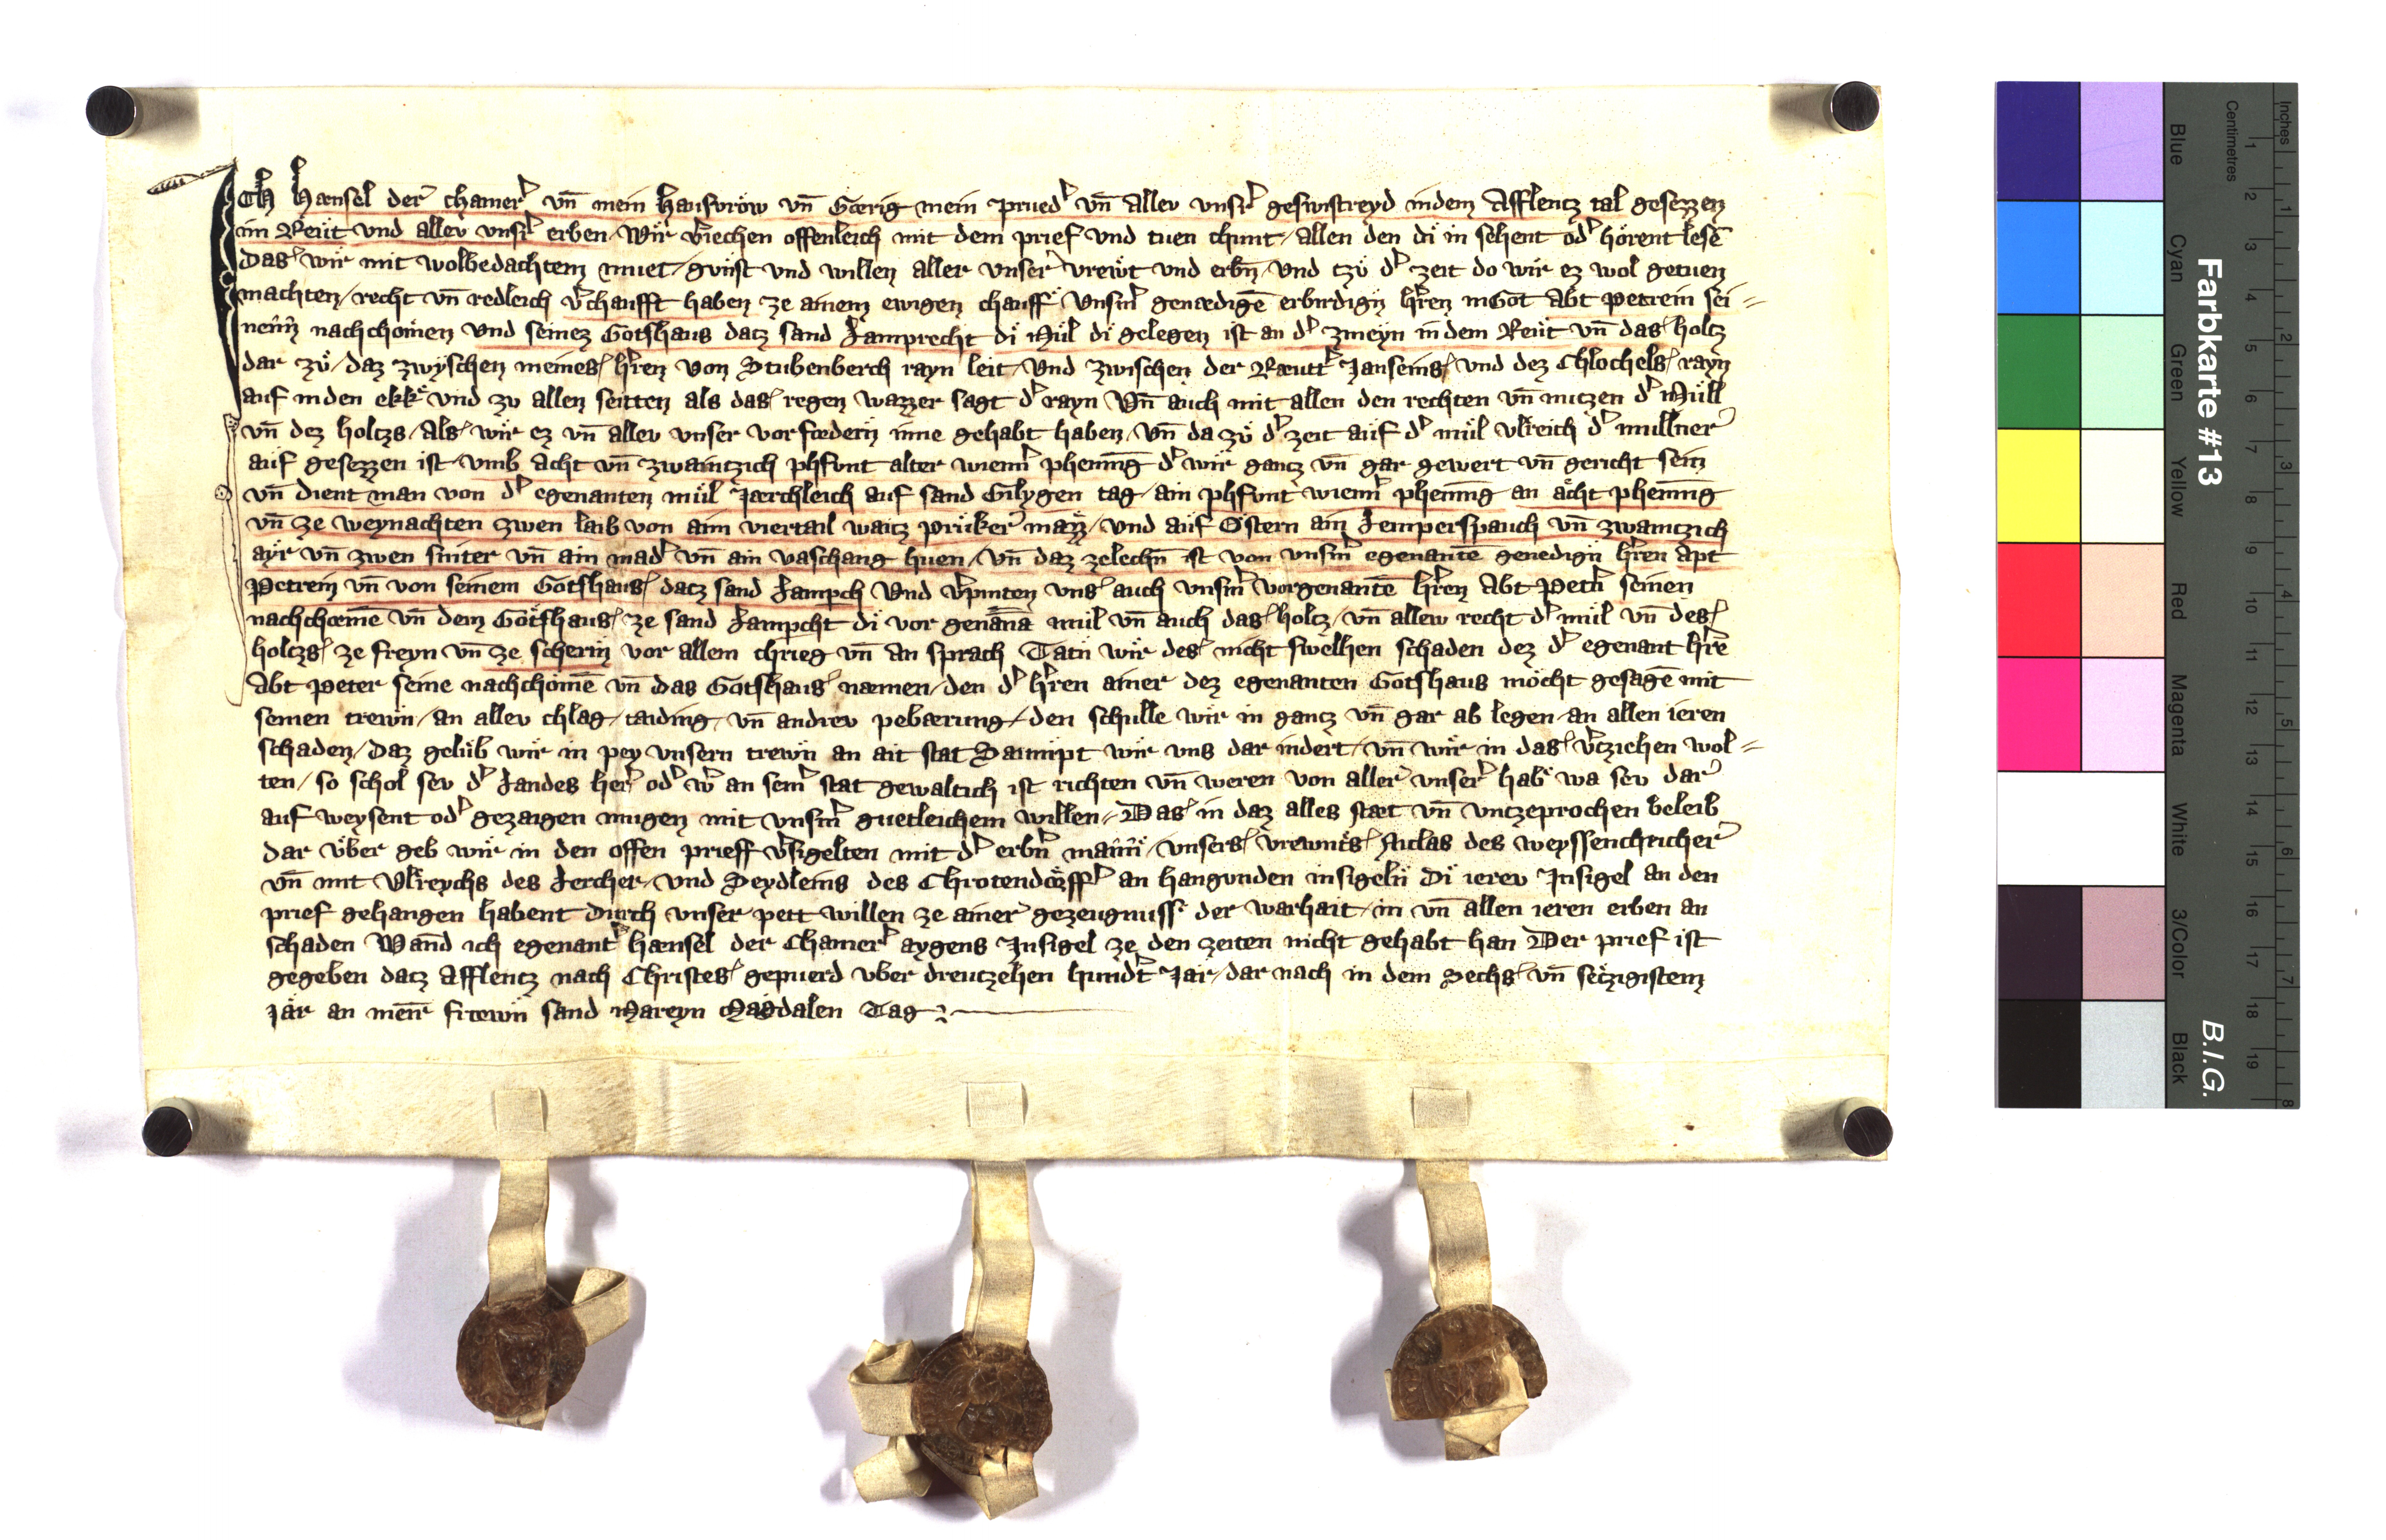 Ich Hænsel der chamerˀ vn̄ mein hausvröw vn̄ Gœrig mein pruedˀ vn̄ allev vnsrˀ geswistreyd indem Afflentz tal gesezzen
im Reüt vnd allev vnsrˀ erben Wir vˀiechen offenleich mit dem prief vnd tuen chunt allen den di in sehent odˀ hörent lesē
das wir mit wolbedachtem muet gunst vnd willen aller vnserˀ vrewt vnd erbn̄ vnd tzu dˀ zeit do wir ez wol getuen
machten recht vn̄ redleich vˀchaufft haben ze ainem ewigen chauff vnsmˀ genœdigē erbirdign hˀren in Got Abt Petrein sei=
nen̄ nachchomen vnd seinez Gotshaus datz sand Lamprecht di Mül di gelegen ist an dˀ zmeyn in dem Reüt vn̄ das holtz
dar zu daz zwyschen meines hˀren von Stubenberch rayn leit vnd zwischen der Rœuttˀ Janseins vnd dez Chlochels rayn
auf in den ekk vnd zu allen seitten als das regen wazzer sagt dˀ rayn Vn̄ auch mit allen den rechten vn̄ nutzen dˀ Müll
vn̄ dez holtzs als wir ez vn̄ allev vnser vorfœdern inne gehabt haben vn̄ da zu dˀ zeit auf dˀ mül vlreich dˀ mullnerˀ
auf gesezzen ist vmb acht vn̄ zwaintzich phfunt alter wiennˀ phennīg dˀ wir gantz vn̄ gar gewert vn̄ gericht sein
vn̄ dient man von dˀ egenanten mül Jærchleich auf sand Gilygen tag ain phfunt wiennˀ phennīg an acht phennīg
vn̄ ze weynachten zwen laib von aim viertail waitz prukerˀ mazz vnd auf Ostern ain Lemperspauch vn̄ zwaintzich
ayr vn̄ zwen sniter vn̄ ain madˀ vn̄ ain vaschang huen vn̄ daz zelechn̄ ist von vnsmˀ egenantē genedign hˀren Apt
Petrein vn̄ von seinem Gotshaus datz sand Lampch Vnd vˀpinten vns auch vnsmˀ vorgenantē hˀren Abt Petrˀ seinen
nachchœmē vn̄ dem Gotshaus ze sand Lampcht di vor genāna mül vn̄ auch das holtz vn̄ allew recht dˀ mül vn̄ des
holtzs ze freyn vn̄ ze scherin vor allem chrieg vn̄ an sprach Tatn wir des nicht swelhen schaden dez dˀ egenant hˀre
Abt Peter seine nachchomē vn̄ das Gotshaus næmen den dˀ hˀren ainer dez egenanten Gotshaus möcht gesagē mit
seinen trewn an allev chlag taiding vn̄ andrev pebærung den schulle wir in gantz vn̄ gar ab legen an allen ieren
schaden daz gelüb wir in pey vnsern trewn an ait stat Daunipt wir vns dar indert vn̄ wir in das vˀtzichen wol=
ten so schol sev dˀ Landes herˀ odˀ wˀ an seinˀ stat gewaltich ist richten vn̄ weren von allerˀ vnserˀ hab wa sev darˀ
auf weysent odˀ gezaigen mugen mit vnsmˀ guetleichem willen Das in daz alles stæt vn̄ vntzeprochen beleib
dar vber geb wir in den offen prieff vˀsigelten mit dˀ erbn̄ mann vnsers vrewnts Niclas des weyssenchricherˀ
vn̄ mit Vlreychs des Lercher vnd Seydleins des Chrotendorffˀ an hangunden insigeln Di ierev Insigel an den
prief gehangen habent durch vnser pett willen ze ainerˀ gezeugnuss der warhait in vn̄ allen ieren erben an
schaden Wand ich egenantˀ hænsel der Chamerˀ aygens Insigel ze den zeiten nicht gehabt han Der prief ist
gegeben datz Afflentz nach Christes gepuerd vber dreutzehen hundˀt Jar dar nach in dem Sechs vn̄ setzigistem
Jar an nēn fitewn sand Mareyn Magdalen Tag
Inches
Centimetres
Farbkarte #13
B.I.G.
Blue
Cyan
Green
Yellow
Red
Magenta
White
3/Color
Black
1 2 3 4 5 6 7 8 9 10 11 12 13 14 15 16 17 18 19
1 2 3 4 5 6 7 8